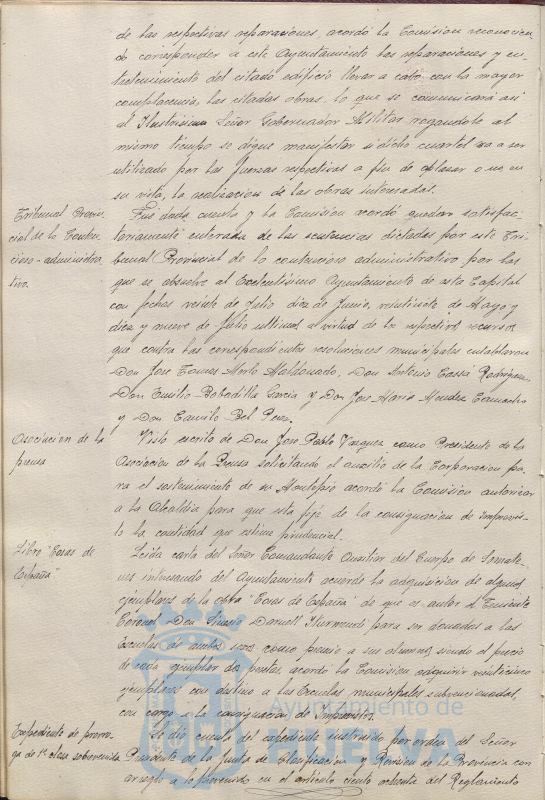 de las respectivas reparaciones acordó la Comision reconocien
do corresponder a este Ayuntamiento las reparaciones y en-
tretenimiento del citado edificio llevar a cabo con la mayor
complacencia las citadas obras, lo que se comunicará así
al Ilustrisimo Señor Gobernador Militar rogandole al
mismo tiempo se digne manifestar si dicho cuartel va a ser
utilizado por las fuerzas respectivas a fin de aplazar o no, en
su vista, la realizacion de las obras interesadas.
Tribunal Provin-
cial de lo Conten-
cioso-administra
tivo.
Fue dada cuenta y la Comision acordó quedar satisfac-
toriamente enterada de las sentencias dictadas por este Tri-
bunal Provincial de lo contencioso administrativo por las
que se absuelve al Excelentisimo Ayuntamiento de esta Capital
con fechas veinte de Julio diez de Junio, veintisiete de Mayo y
diez y nueve de Julio ultimos a virtud de los respectivos recursos
que contra las correspondientes resoluciones municipales entablaron
Don Jose Tomas Morlo Maldonado, Don Antonio Rodriguez,
Don Emilio Bobadilla Garcia y Don Jose Maria Mendez Camacho
y Don Camilo Bel Perez.
Asociacion de la
prensa
Visto escrito de Don Jose Pablo Vazquez como Presidente de la
Asociacion de la Prensa solicitando el auxilio de la Corporacion pa-
ra el sostenimiento de su Montepio acordó la Comision autorizar
a la Alcaldia para que esta fije de la consignacion de imprevis-
to la cantidad que estime prudencial.
Libro "Cosas de
España"
Leida carta del Señor Comandante Auxiliar del Cuerpo de Somate-
nes interesando del Ayuntamiento acuerde la adquisicion de algunos
ejemplares de la obra "Cosas de España" de que es autor el Teniente
Coronel Don Darnell Iturmendi para ser donados a las
Escuelas de ambos sexos como premio a sus alumnos siendo el precio
de cada ejemplar dos pesetas acordó la Comision adquirir veinticinco
ejemplares con destino a las Escuelas municipales subvencionadas
con cargo a la consignacion de Imprevistos.
Expediente de prorro-
ga de 1ª clase sobrevenida
Se dió cuenta del expediente instruido por orden del Señor
Presidente de la Junta de Clasificacion y Revision de la Provincia con
arreglo a lo prevenido en el articulo ciento ochenta del Reglamento
Ayuntamiento de
HUELVA